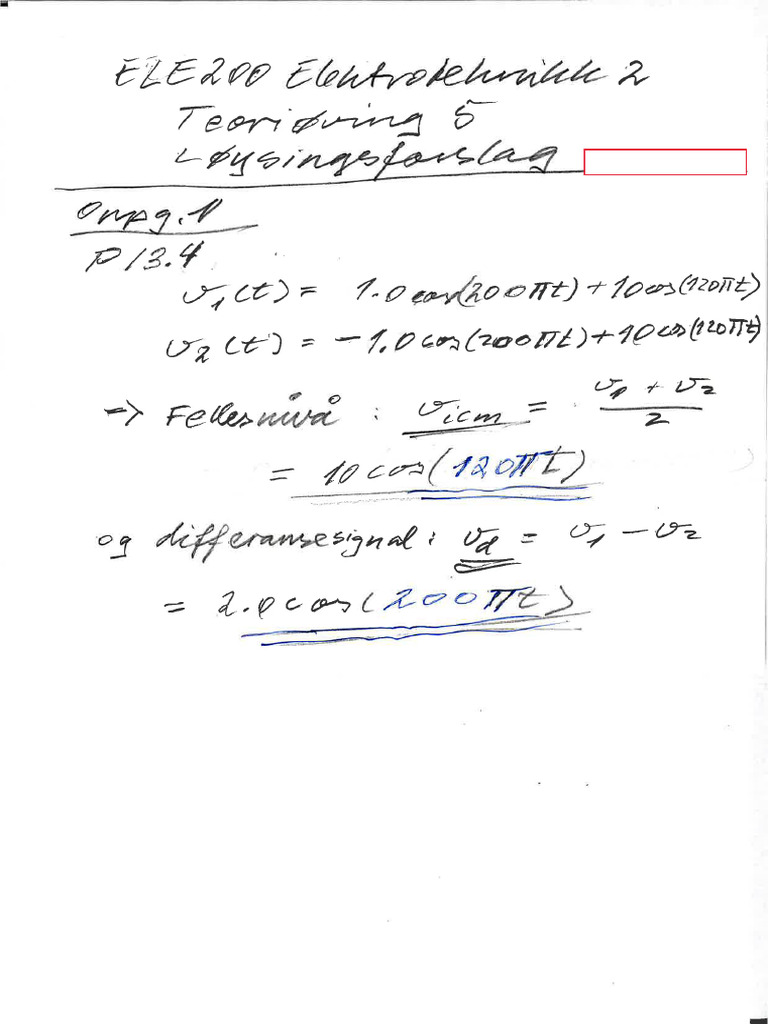 ELE200 Elektroteknikk 2
Teoriøving 5
Løysingsforslag
Oppg. 1
P13.4
v₁(t) = 1.0cos(200πt)+10cos(120πt)
v₂(t) = -1.0cos(200πt)+10cos(120πt)
=> Fellesnivå : v_icm = (v₁ + v₂)/2
= 10cos(120πt)
og differansesignal: v_d = v₁ - v₂
= 2.0cos(200πt)